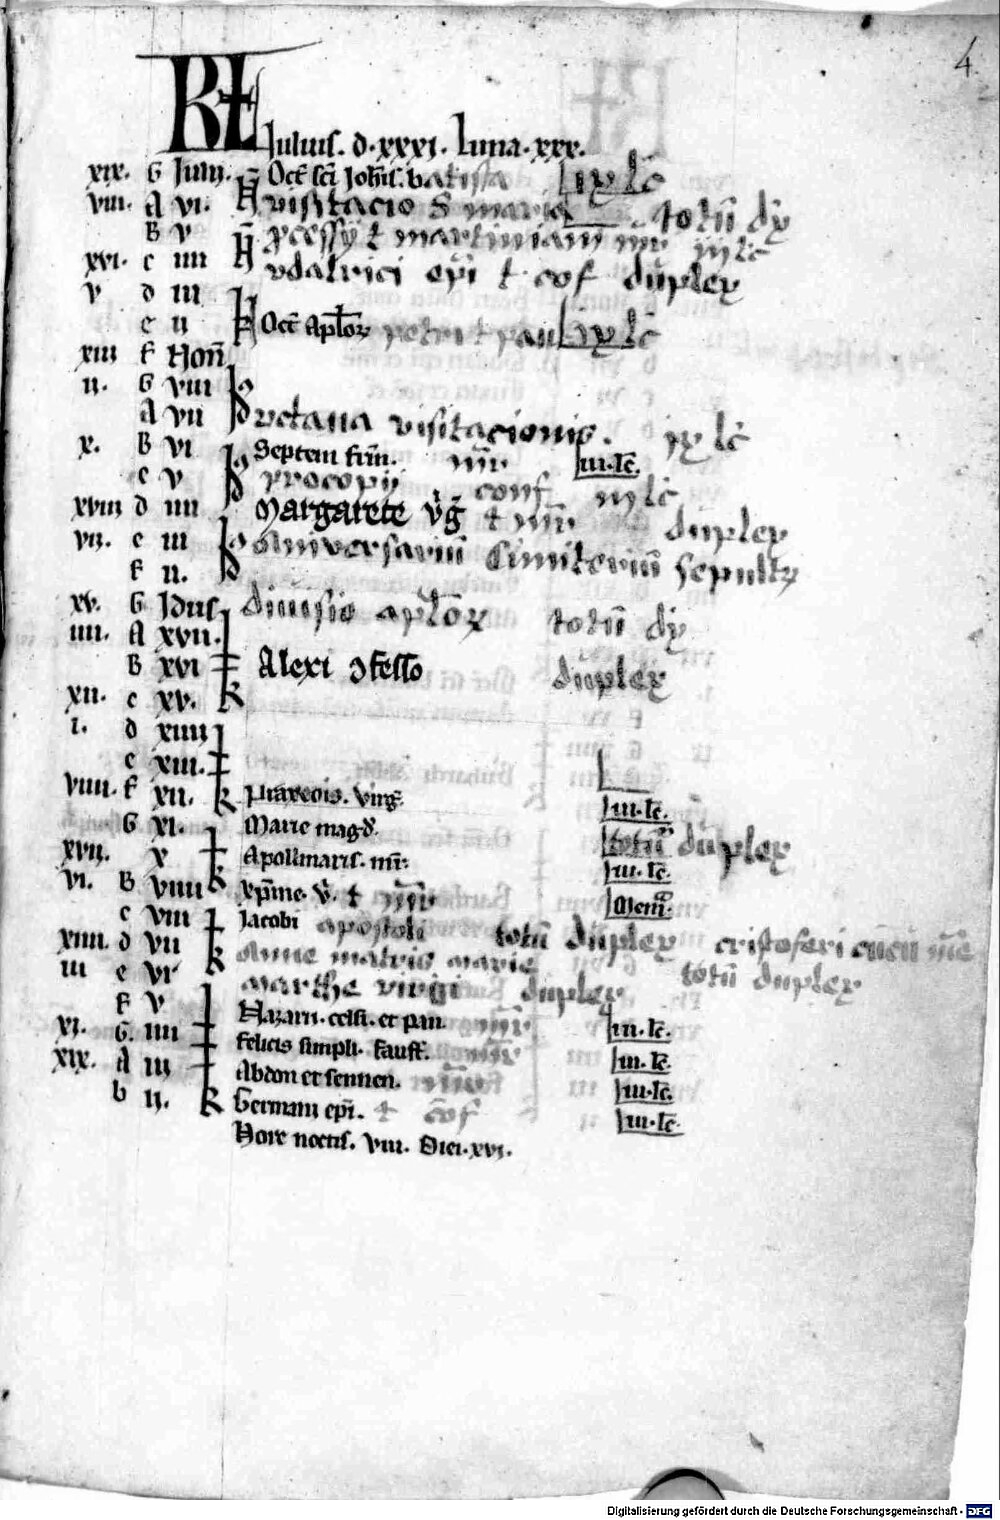 4
KL Iulius. d. xxxi. Luna. xxx.
xix. G Iulii. Oct̄ sc̄i Ioh̄is. batista ix lc̄
viii. A vi. visitacio S marie totū dx
B v ꝓcessy et martiniani mr iij lc̄
xvi. c iiii vdalrici ep̄i et cof duplex
v d iii
e ii Oct̄ Apl̄oꝝ petri et pauli ix lc̄
xiii f Non̄
ii. G viii
A vii octaua visitacionis. ix lc̄
x. B vi Septem fr̄m. mr iii. lc̄.
c v procopy conf iij lc̄
xviii d iiii Margarete v̄g et mr duplex
vii. e iii Aniversariū Cimiteriū sepultꝝ
f ii.
xv. G Idus diuisio apl̄oꝝ totū dx
iiii. A xvii.
B xvi Alexi ↄfesso duplex
xii. c xv.
i. d xiiii
e xiii.
viiii. f xii. Praxedis. virḡ. iii. lc̄.
G xi. Marie magd̄. totū duplex
xvii. x Apollinaris. mr̄. iii. lc̄.
vi. B viiii xp̄ine. v̄. et mr Mem̄.
c viii Iacobi apostoli totū duplex cristoferi
xiiii. d vii Anne matris marie totū duplex
iii e vi marthe virgi duplex
f v Nazarii. celsi. et pan. iii. lc̄.
xi. G. iiii felicis simpli. faust̄. iii. lc̄.
xix. A iii Abdon et sennen. iii. lc̄.
b ii. Germani ep̄i. et cōf iii. lc̄.
Hore noctis. viii. Diei. xvi.
Digitalisierung gefördert durch die Deutsche Forschungsgemeinschaft - DFG